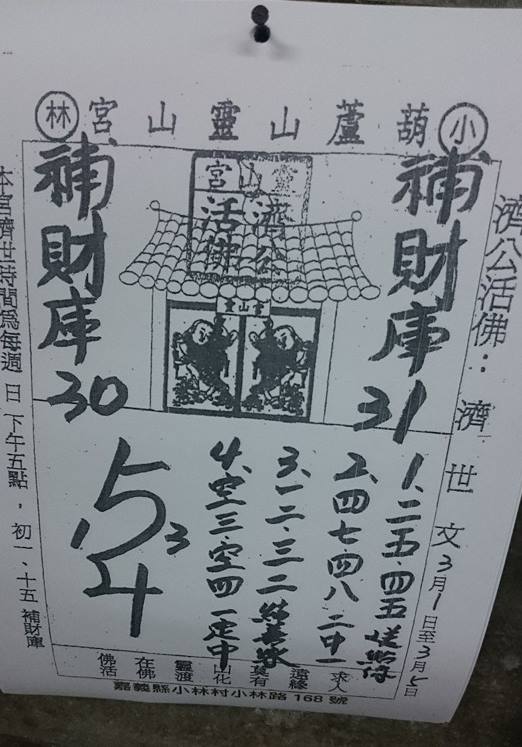 小葫蘆山靈山宮林
濟公活佛：濟世文3月1日至3月5日
補財庫31
靈山宮
濟公
活佛
靈山宮
補財庫30
本宮濟世時間為每週日下午五點，初一、十五補財庫
1、二五、四五
2、四七、四八二中一
3、一二、三二
4、空三、空四一定中
5
3
4
求人
遠緣
莫有
山化
靈渡
在佛
佛活
嘉義縣小林村小林路168號